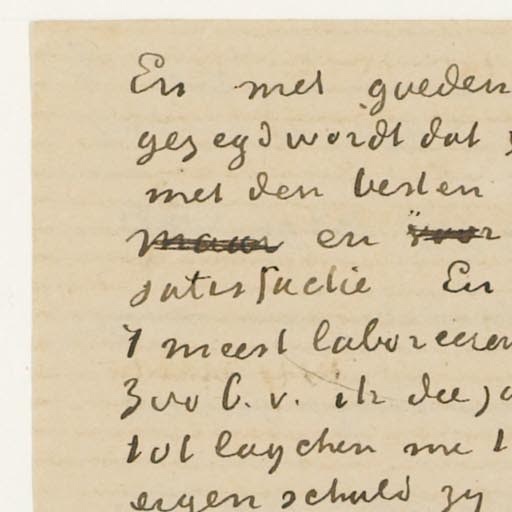 En met goeden
gezegd wordt dat
met den besten
maar en voor
satisfactie En
't meest laboreeren
Zoo b.v. ik dezo
tot laychen me t
eigen schuld zy